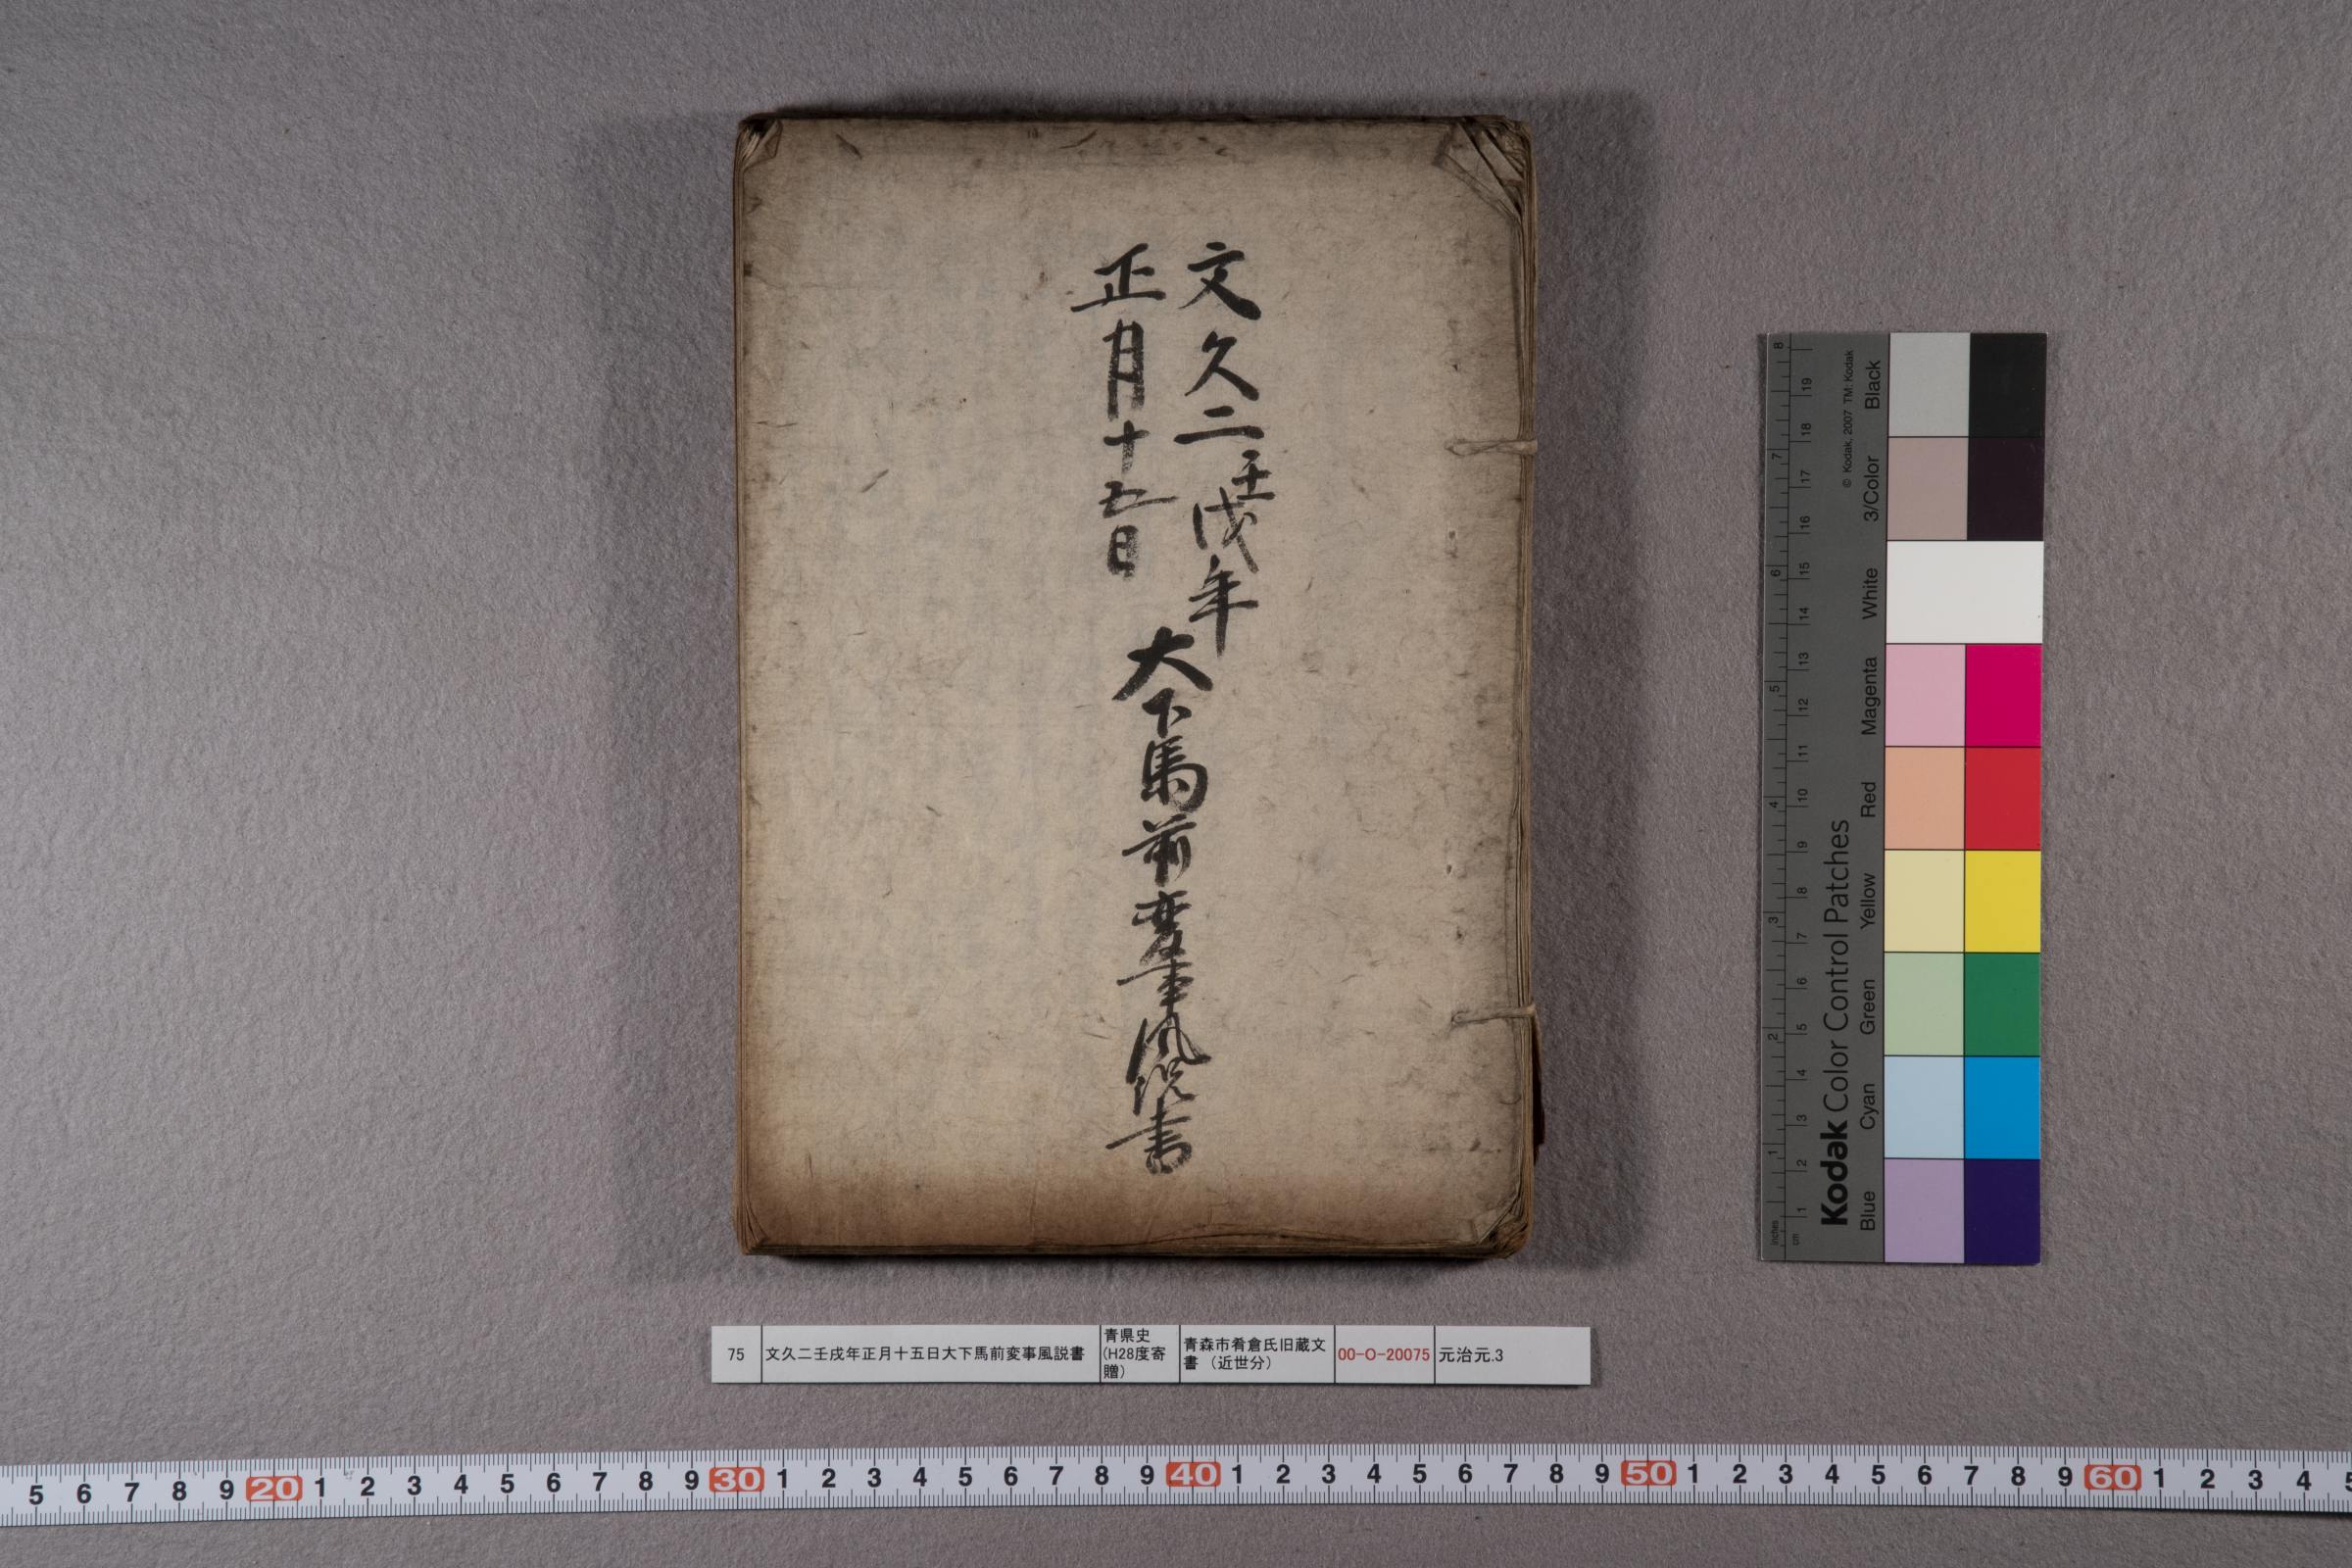 文久二壬戌年
正月十五日
大下馬前変事風説書
75 文久二壬戌年正月十五日大下馬前変事風説書 青県史(H28度寄贈) 青森市肴倉氏旧蔵文書（近世分） 00-O-20075 元治元.3
Kodak Color Control Patches
© Kodak, 2007 TM: Kodak
Blue Cyan Green Yellow Red Magenta White 3/Color Black
inches 1 2 3 4 5 6 7 8
cm 1 2 3 4 5 6 7 8 9 10 11 12 13 14 15 16 17 18 19
5 6 7 8 9 20 1 2 3 4 5 6 7 8 9 30 1 2 3 4 5 6 7 8 9 40 1 2 3 4 5 6 7 8 9 50 1 2 3 4 5 6 7 8 9 60 1 2 3 4